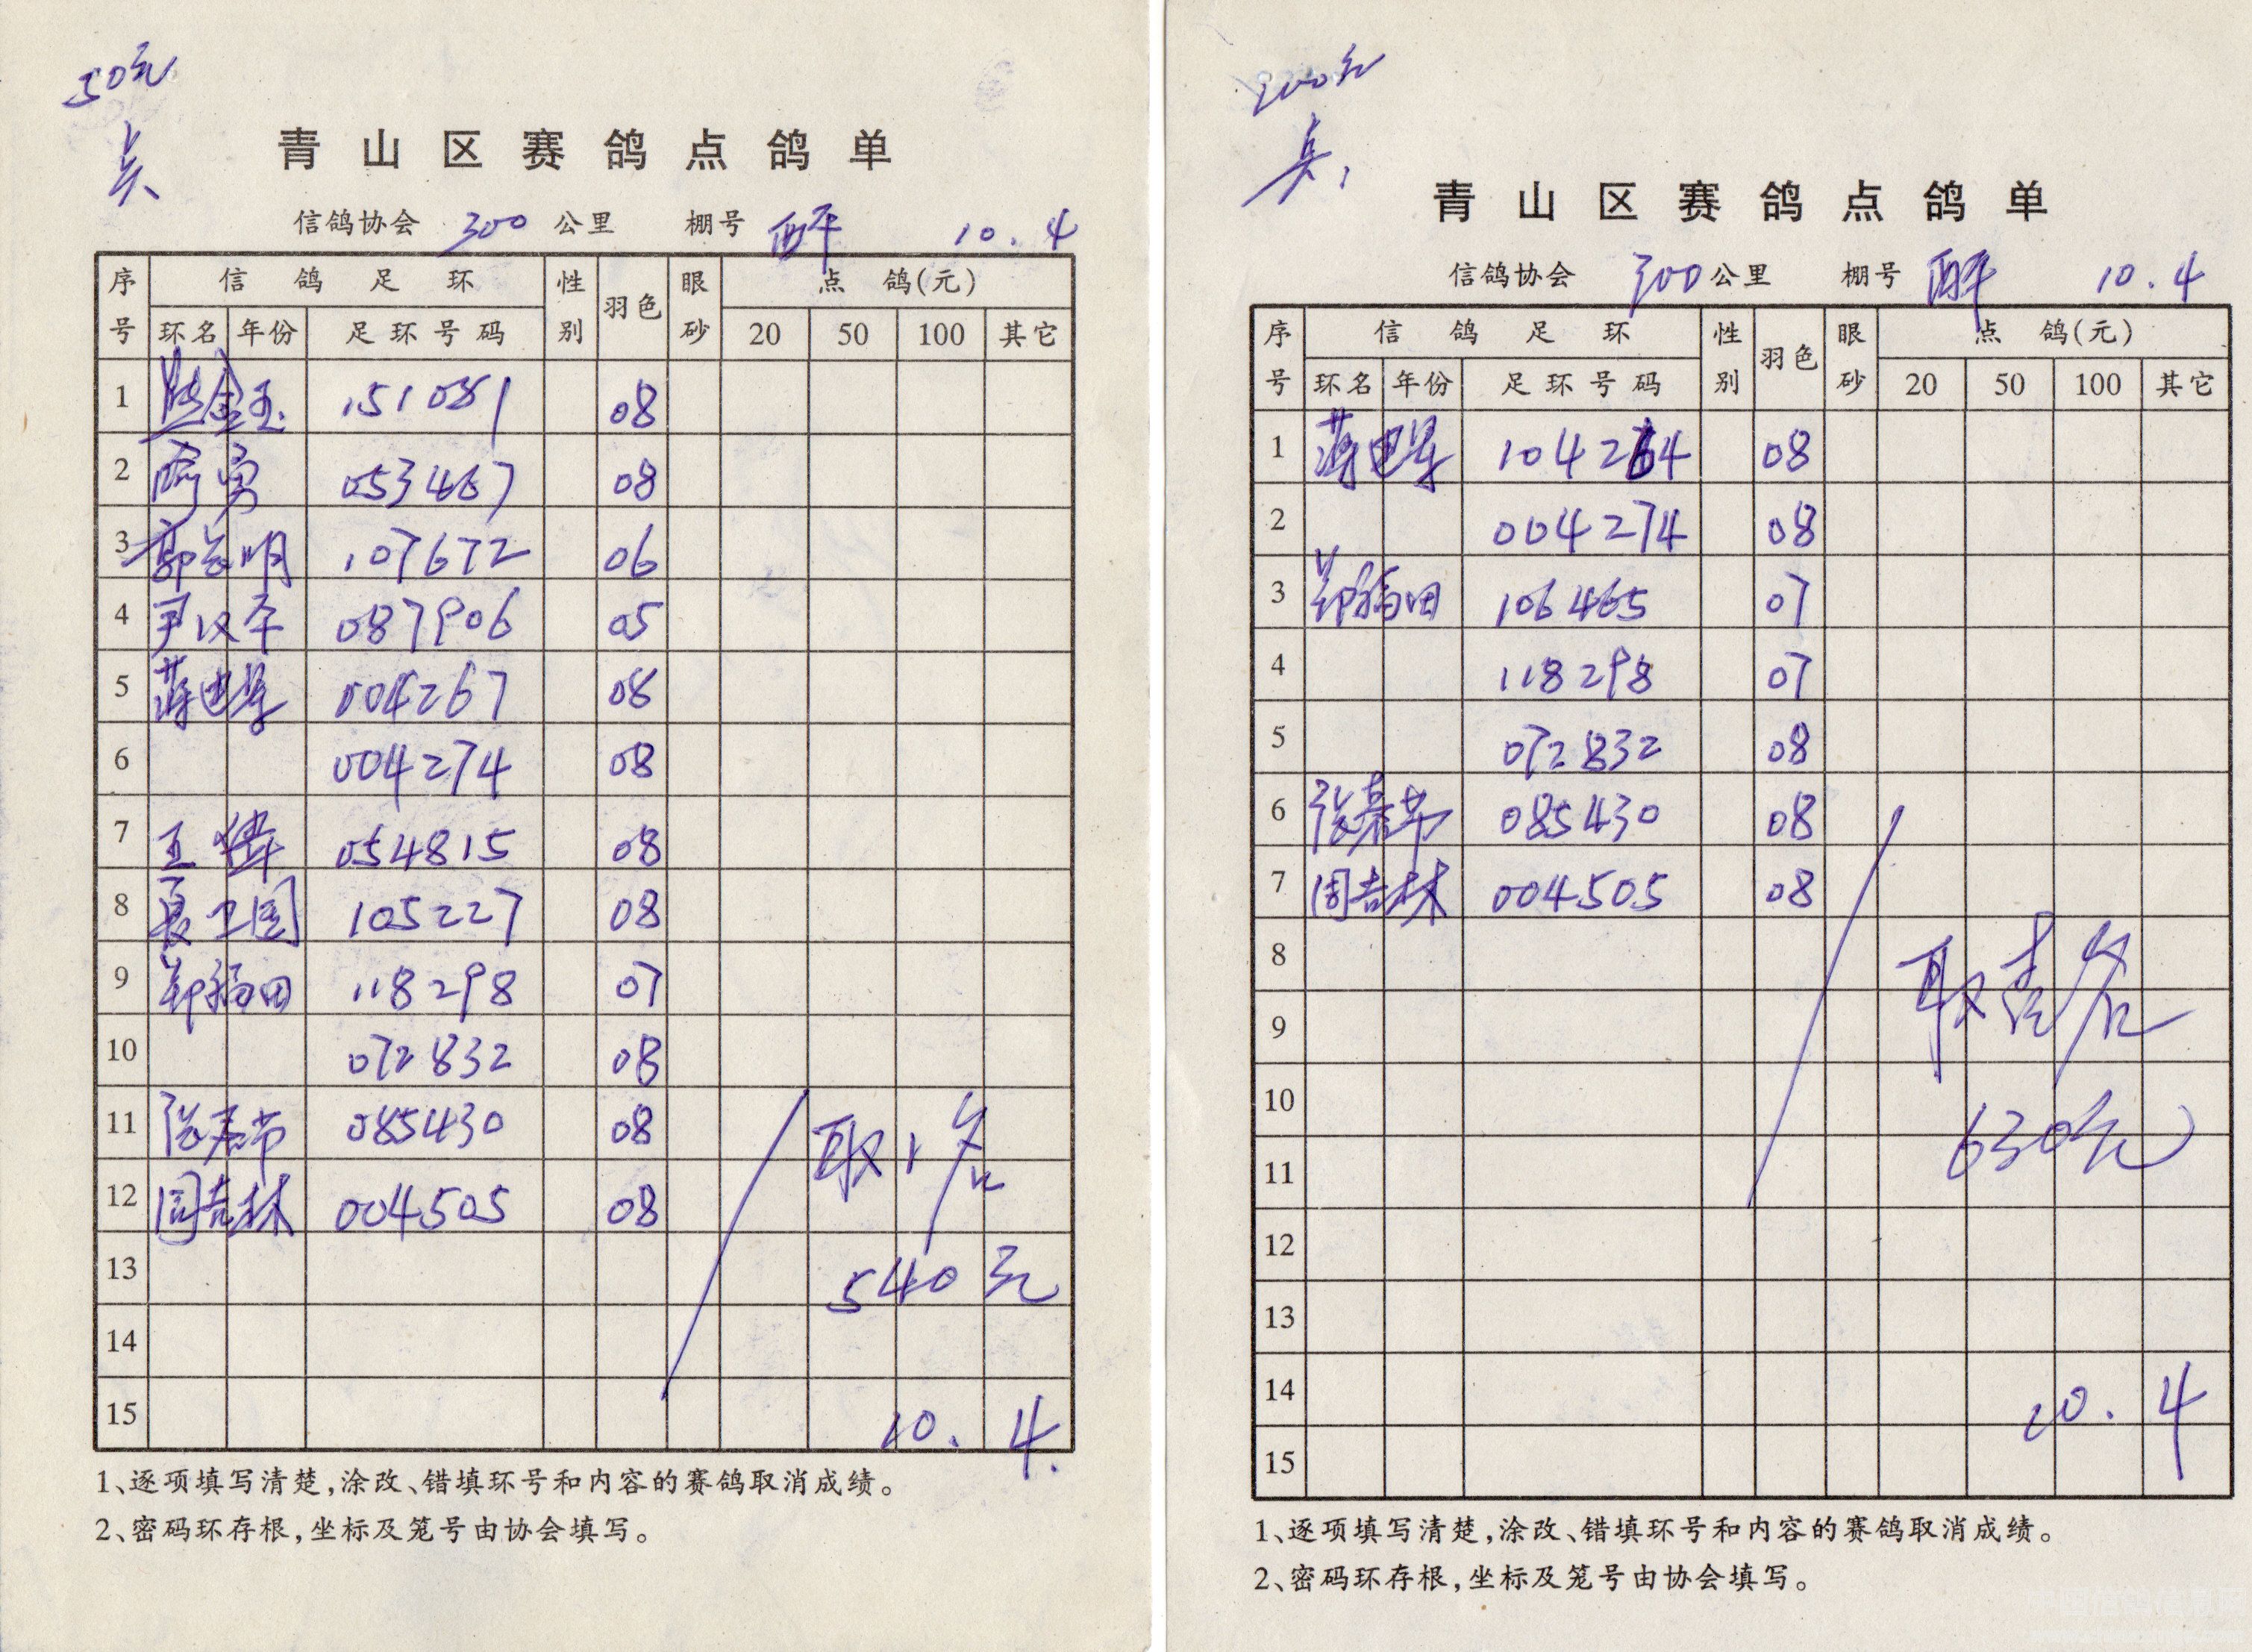 50元
青山区赛鸽点鸽单
信鸽协会 300 公里 棚号 10.4
序号 信鸽足环 性别 羽色 眼砂 点鸽(元)
环名 年份 足环号码 20 50 100 其它
1 金玉 151081 08
2 勇 053467 08
3 郭 明 107672 06
4 尹汉平 087906 05
5 蒋 004267 08
6 004274 08
7 王 054815 08
8 夏卫国 105227 08
9 郑福田 118298 07
10 072832 08
11 张 节 085430 08
12 周吉林 004505 08
取1名
13
540元
14
15 10.4.
1、逐项填写清楚,涂改、错填环号和内容的赛鸽取消成绩。
2、密码环存根,坐标及笼号由协会填写。
100元
青山区赛鸽点鸽单
信鸽协会 300 公里 棚号 10.4
序号 信鸽足环 性别 羽色 眼砂 点鸽(元)
环名 年份 足环号码 20 50 100 其它
1 蒋 104264 08
2 004274 08
3 郑福田 106465 07
4 118298 07
5 072832 08
6 张 节 085430 08
7 周吉林 004505 08
8
取壹名
9
10
630元
11
12
13
14
10.4
15
1、逐项填写清楚,涂改、错填环号和内容的赛鸽取消成绩。
2、密码环存根,坐标及笼号由协会填写。